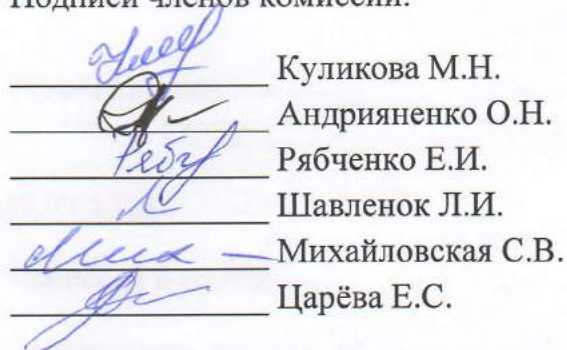 Подписи членов комиссии:
Куликова М.Н.
Андрияненко О.Н.
Рябченко Е.И.
Шавленок Л.И.
Михайловская С.В.
Царёва Е.С.